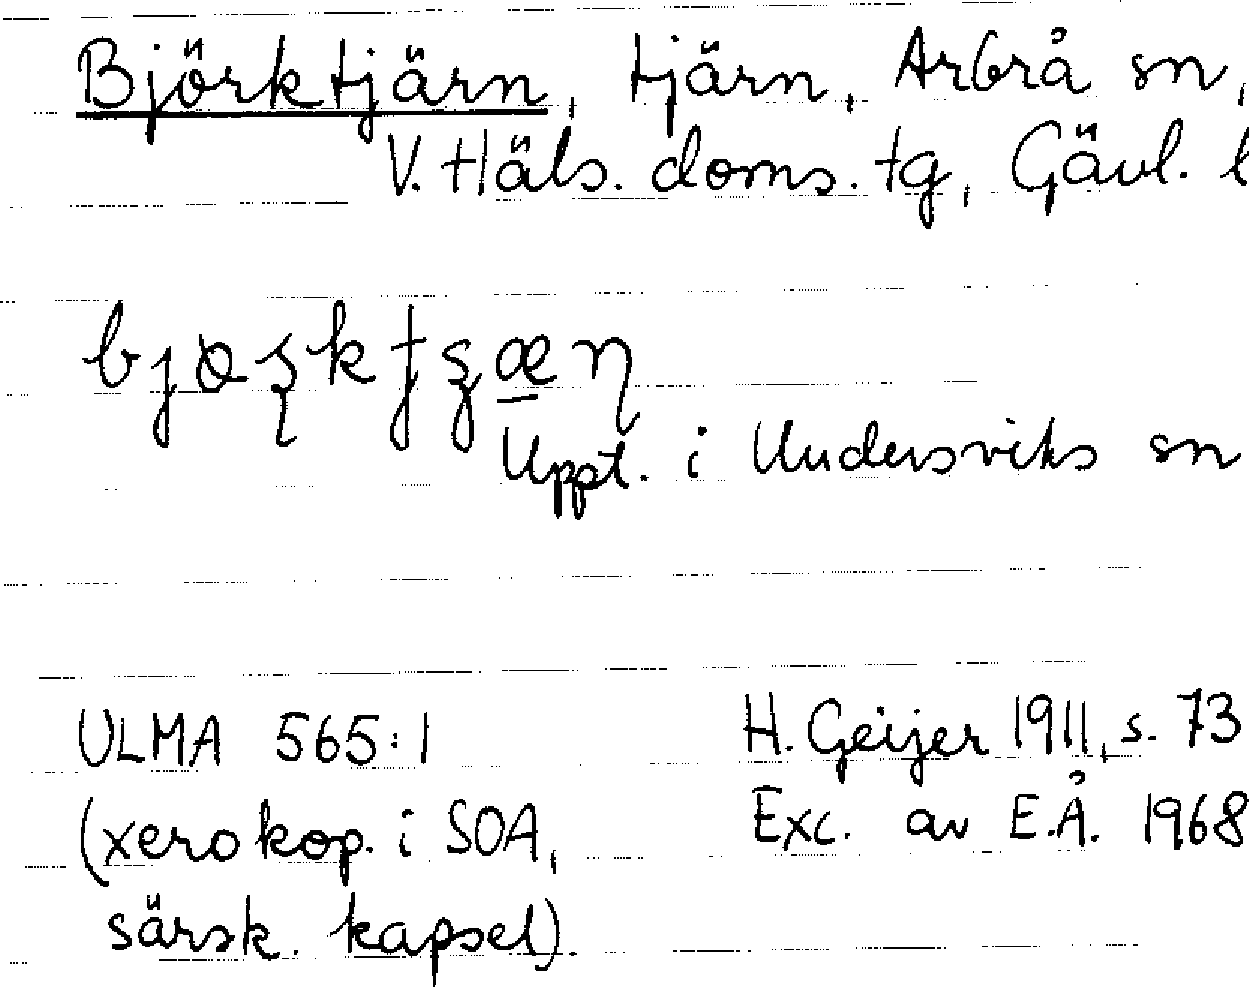 Björktjärn, tjärn, Arbrå sn,
V. Häls. doms. tg, Gävl. l
Uppt. i Undersviks sn
ULMA 565:1 H. Geijer 1911, s. 73
(xerokop. i SOA, Exc. av E.Å. 1968
särsk. kapsel).